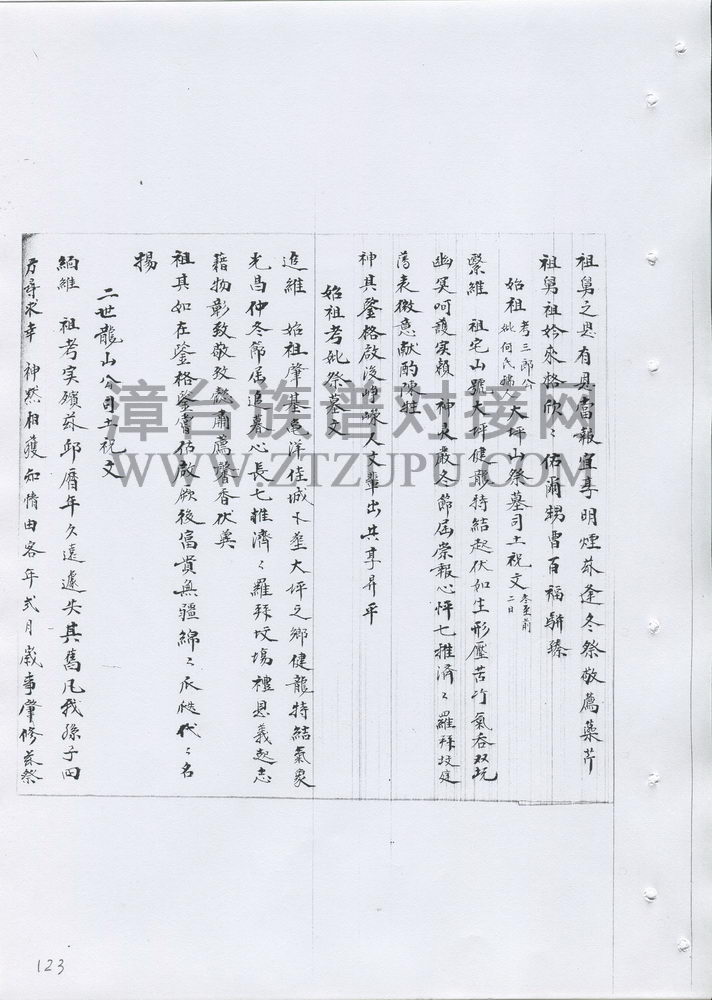 祖舅之恩有具當報宜享明煙茲逢冬祭敬薦蘋芹
祖舅祖妗來格欣欣佑爾甥曹百福駢臻
始祖考三郎公妣何氏媽大坪山祭墓司土祝文冬至前二日
緊維 祖宅山號大坪健龍特結起伏如生形壓苦竹氣吞双坑
幽冥呵護实賴 神灵嚴冬節屆崇報心怦七推濟濟羅拜坟庭
薄表微意献酌陳牲
神其鉴格啟後崢嶸人文輩出共享昇平
始祖考妣祭墓文
追維 始祖肇基 洋佳城卜 大坪之鄉健龍特結氣象
光昌仲冬節屆追慕心長七推濟濟羅拜坟塲禮恩義起志
藉物彰致敬致慤肅薦馨香伏冀
祖其如在鉴格鉴嘗佑啟厥後富貴無疆綿綿瓜瓞代代名
揚
二世龍山公司土祝文
緬維 祖考实殯茲邱曆年久遠遽失其舊凡我孫子四
方尋求幸 神然相護知情由客年弍月歲事肇修茲祭
漳台族谱对接网
WWW.ZTZUPU.COM
123